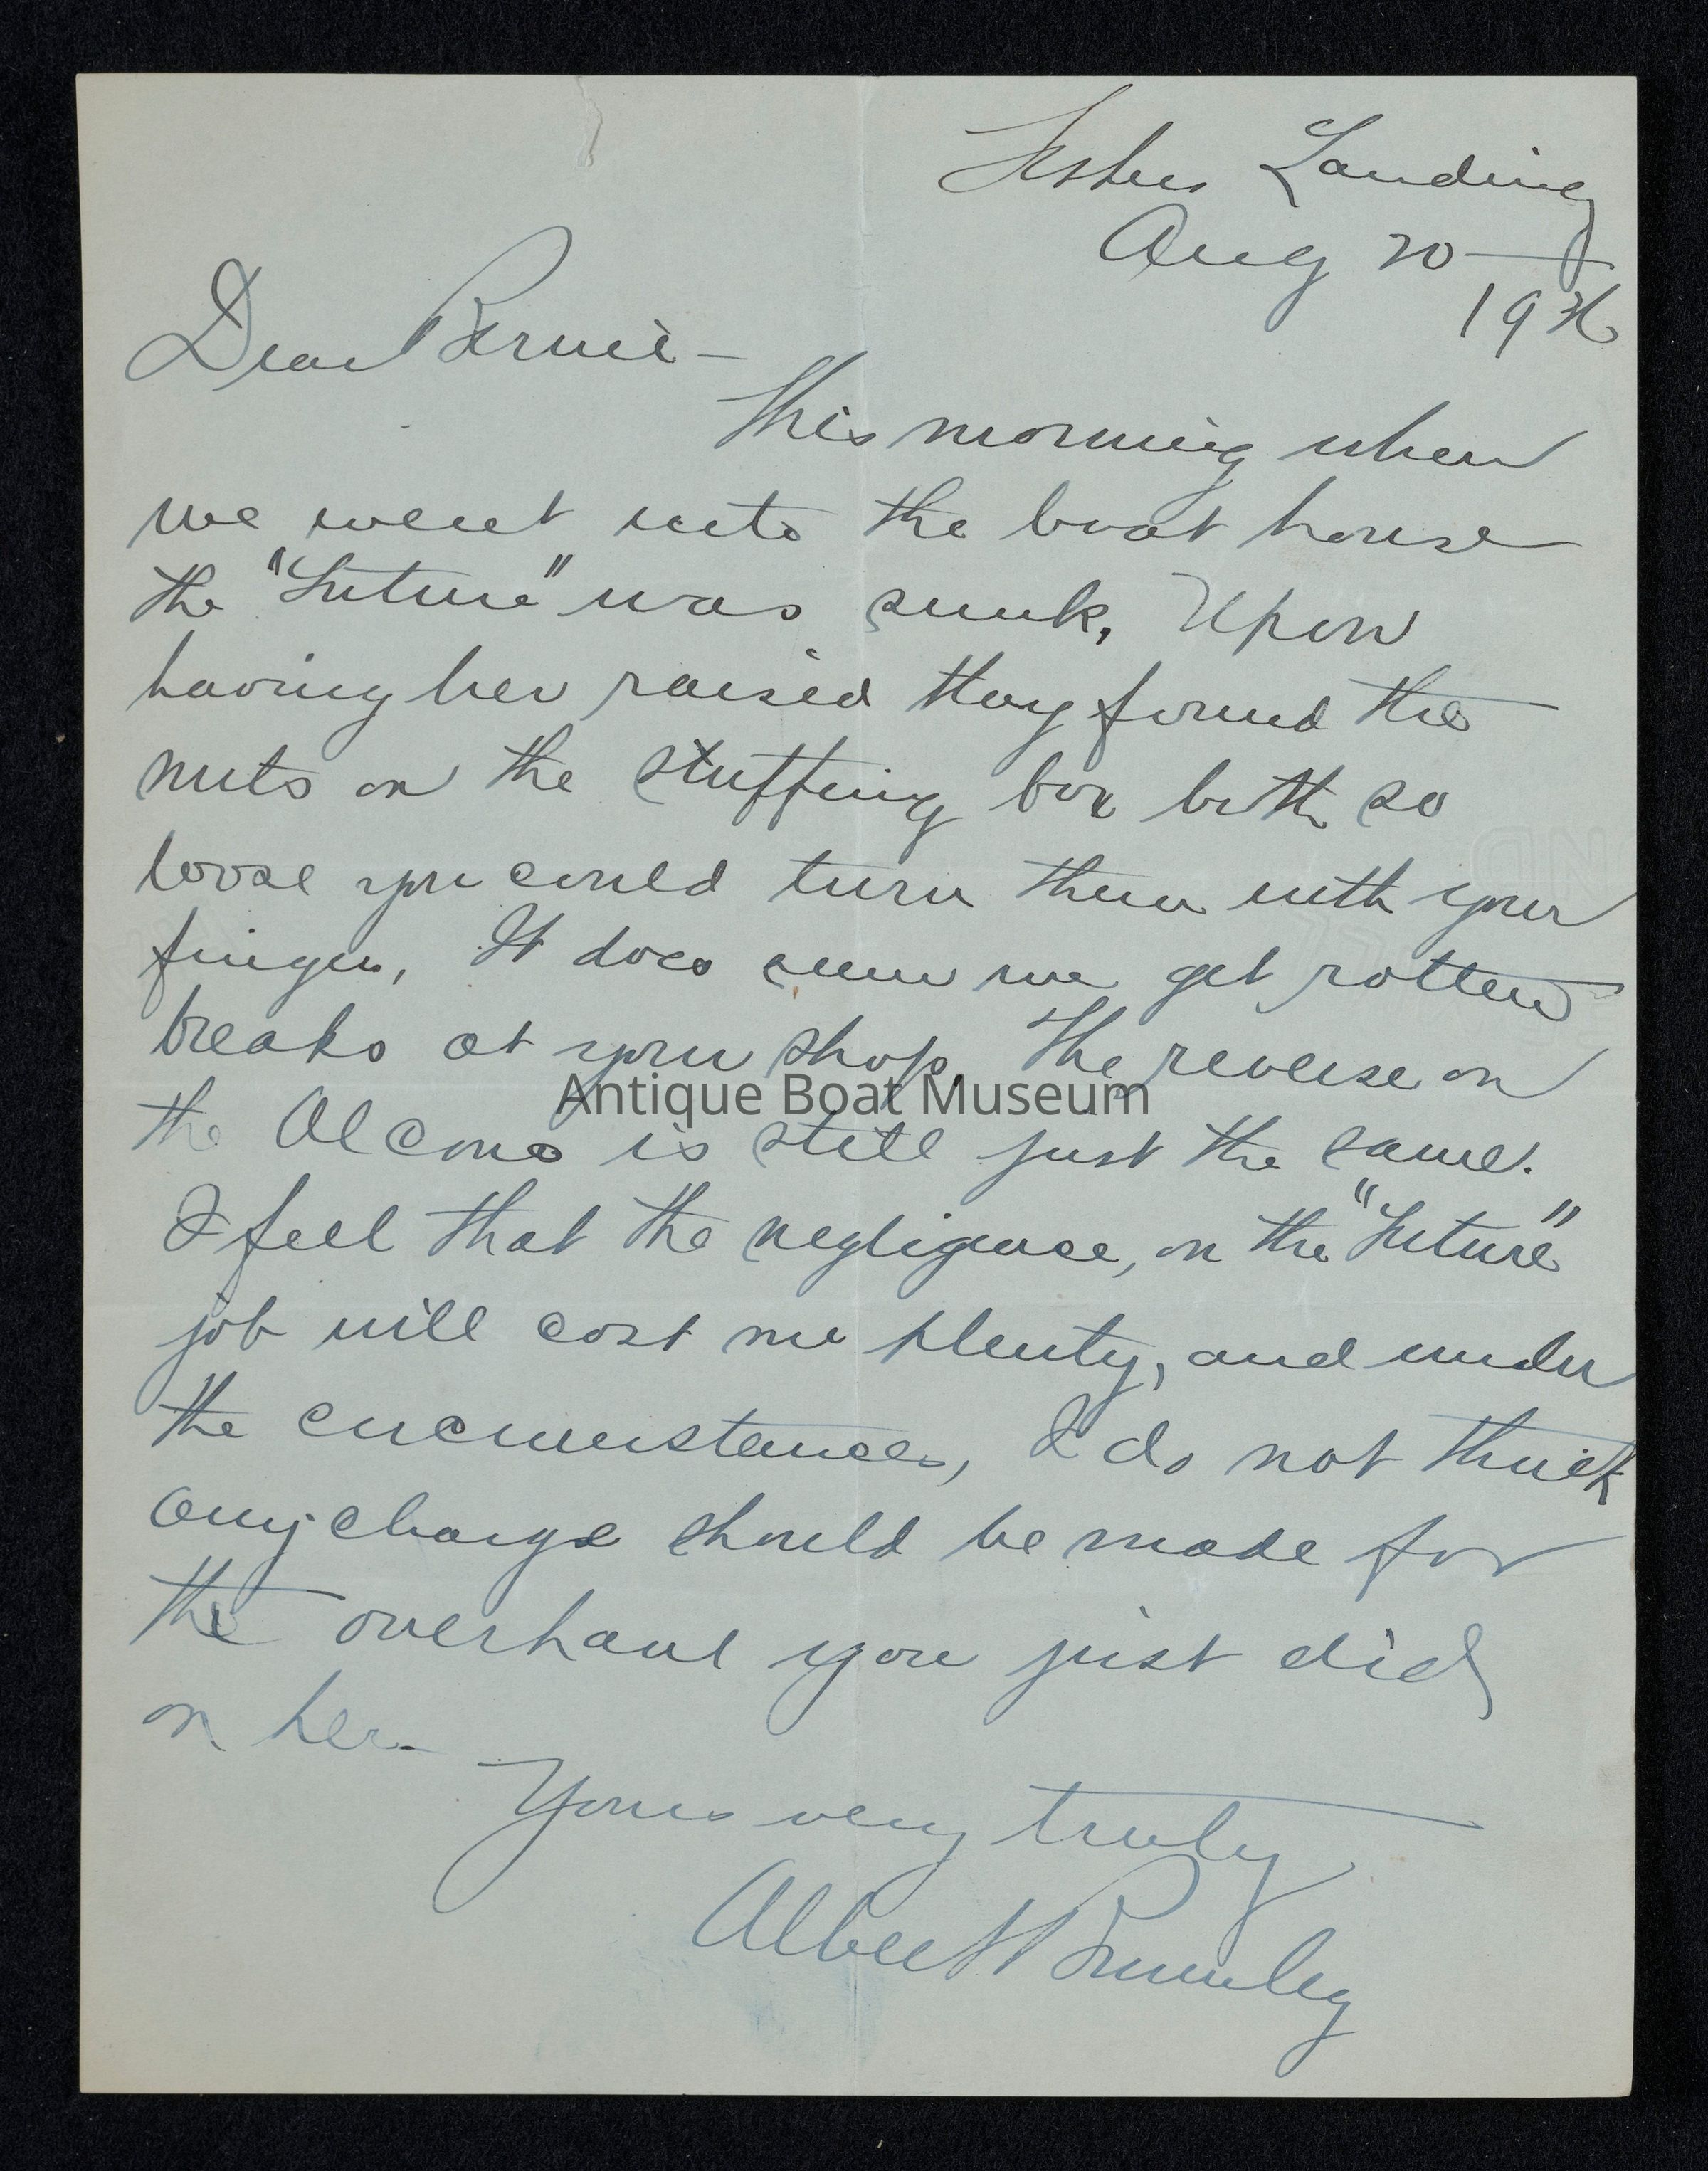 Fishers Landing
Aug 20
1936
Dear Bernie -
This morning when
we went into the boat house
the "Future" was sunk, Upon
having her raised they found the
nuts on the stuffing box both so
loose you could turn them with your
finger, It does seem we get rotten
breaks at your shop. The reverse on
Antique Boat Museum
the is still just the same.
I feel that the negligence, on the "Future"
job will cost me plenty, and under
the circumstances, I do not think
any charge should be made for
the overhaul you just did
on her -
Yours very truly
Albert